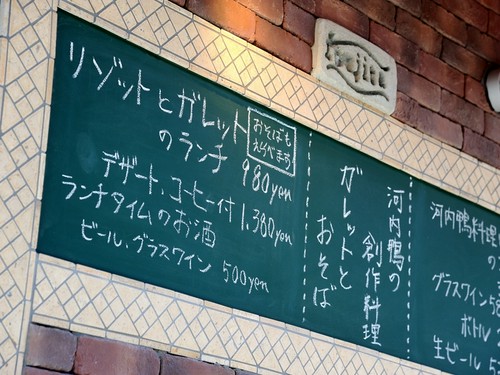 リゾットとガレット
のランチ 980yen
おそばも
えらべます
デザート、コーヒー付 1,380yen
ランチタイムのお酒
ビール、グラスワイン 500yen
河内鴨の
創作料理
ガレットと
おそば
河内鴨料理
の
グラスワイン
ボトル
生ビール